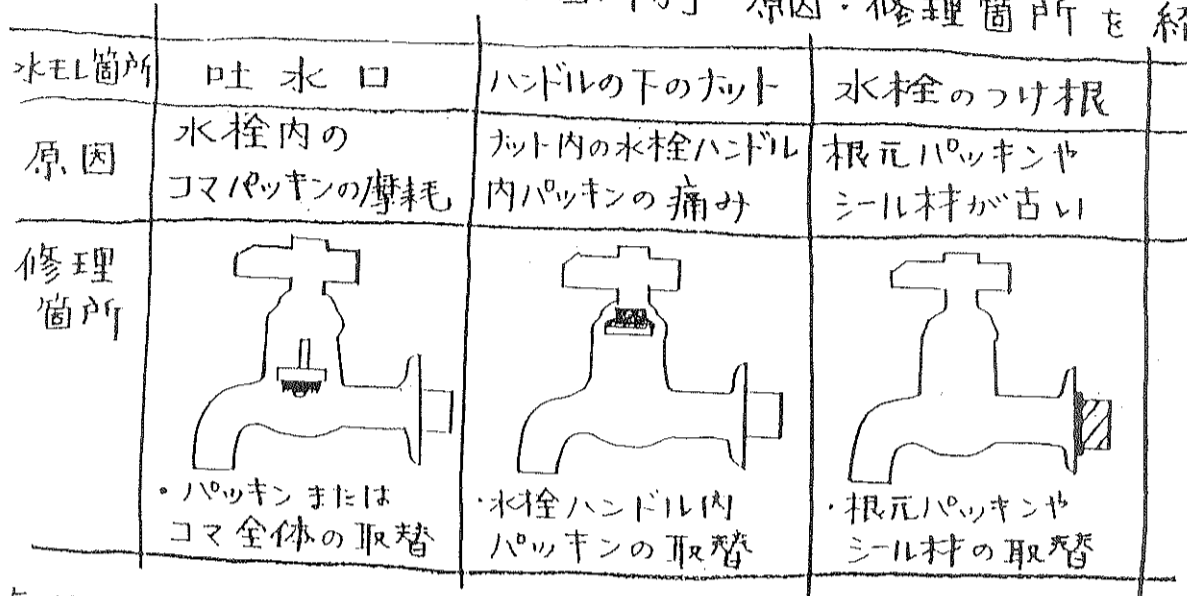 原因・修理箇所を紹
水モレ箇所 吐水口 ハンドルの下のナット 水栓のつけ根
原因
水栓内の
コマパッキンの摩耗
ナット内の水栓ハンドル
内パッキンの痛み
根元パッキンや
シール材が古い
修理
箇所
・パッキンまたは
コマ全体の取替
・水栓ハンドル内
パッキンの取替
・根元パッキンや
シール材の取替